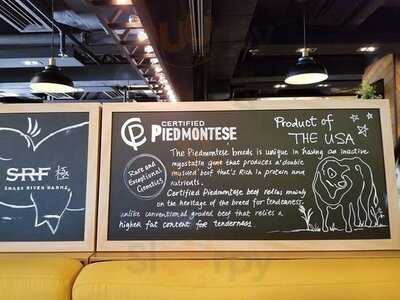 SRF 極
SNAKE RIVER FARMS
CERTIFIED
PIEDMONTESE
Rare and
Exceptional
Genetics
Product of
THE USA
The Piedmontese breeds is unique in having an inactive
myostatin gene that produces a double
muscled beef that's Rich in protein and
nutrients.
Certified Piedmontese beef relies mainly
on the heritage of the breed for tenderness.
unlike conventional graded beef that relies a
higher fat content for tenderness.